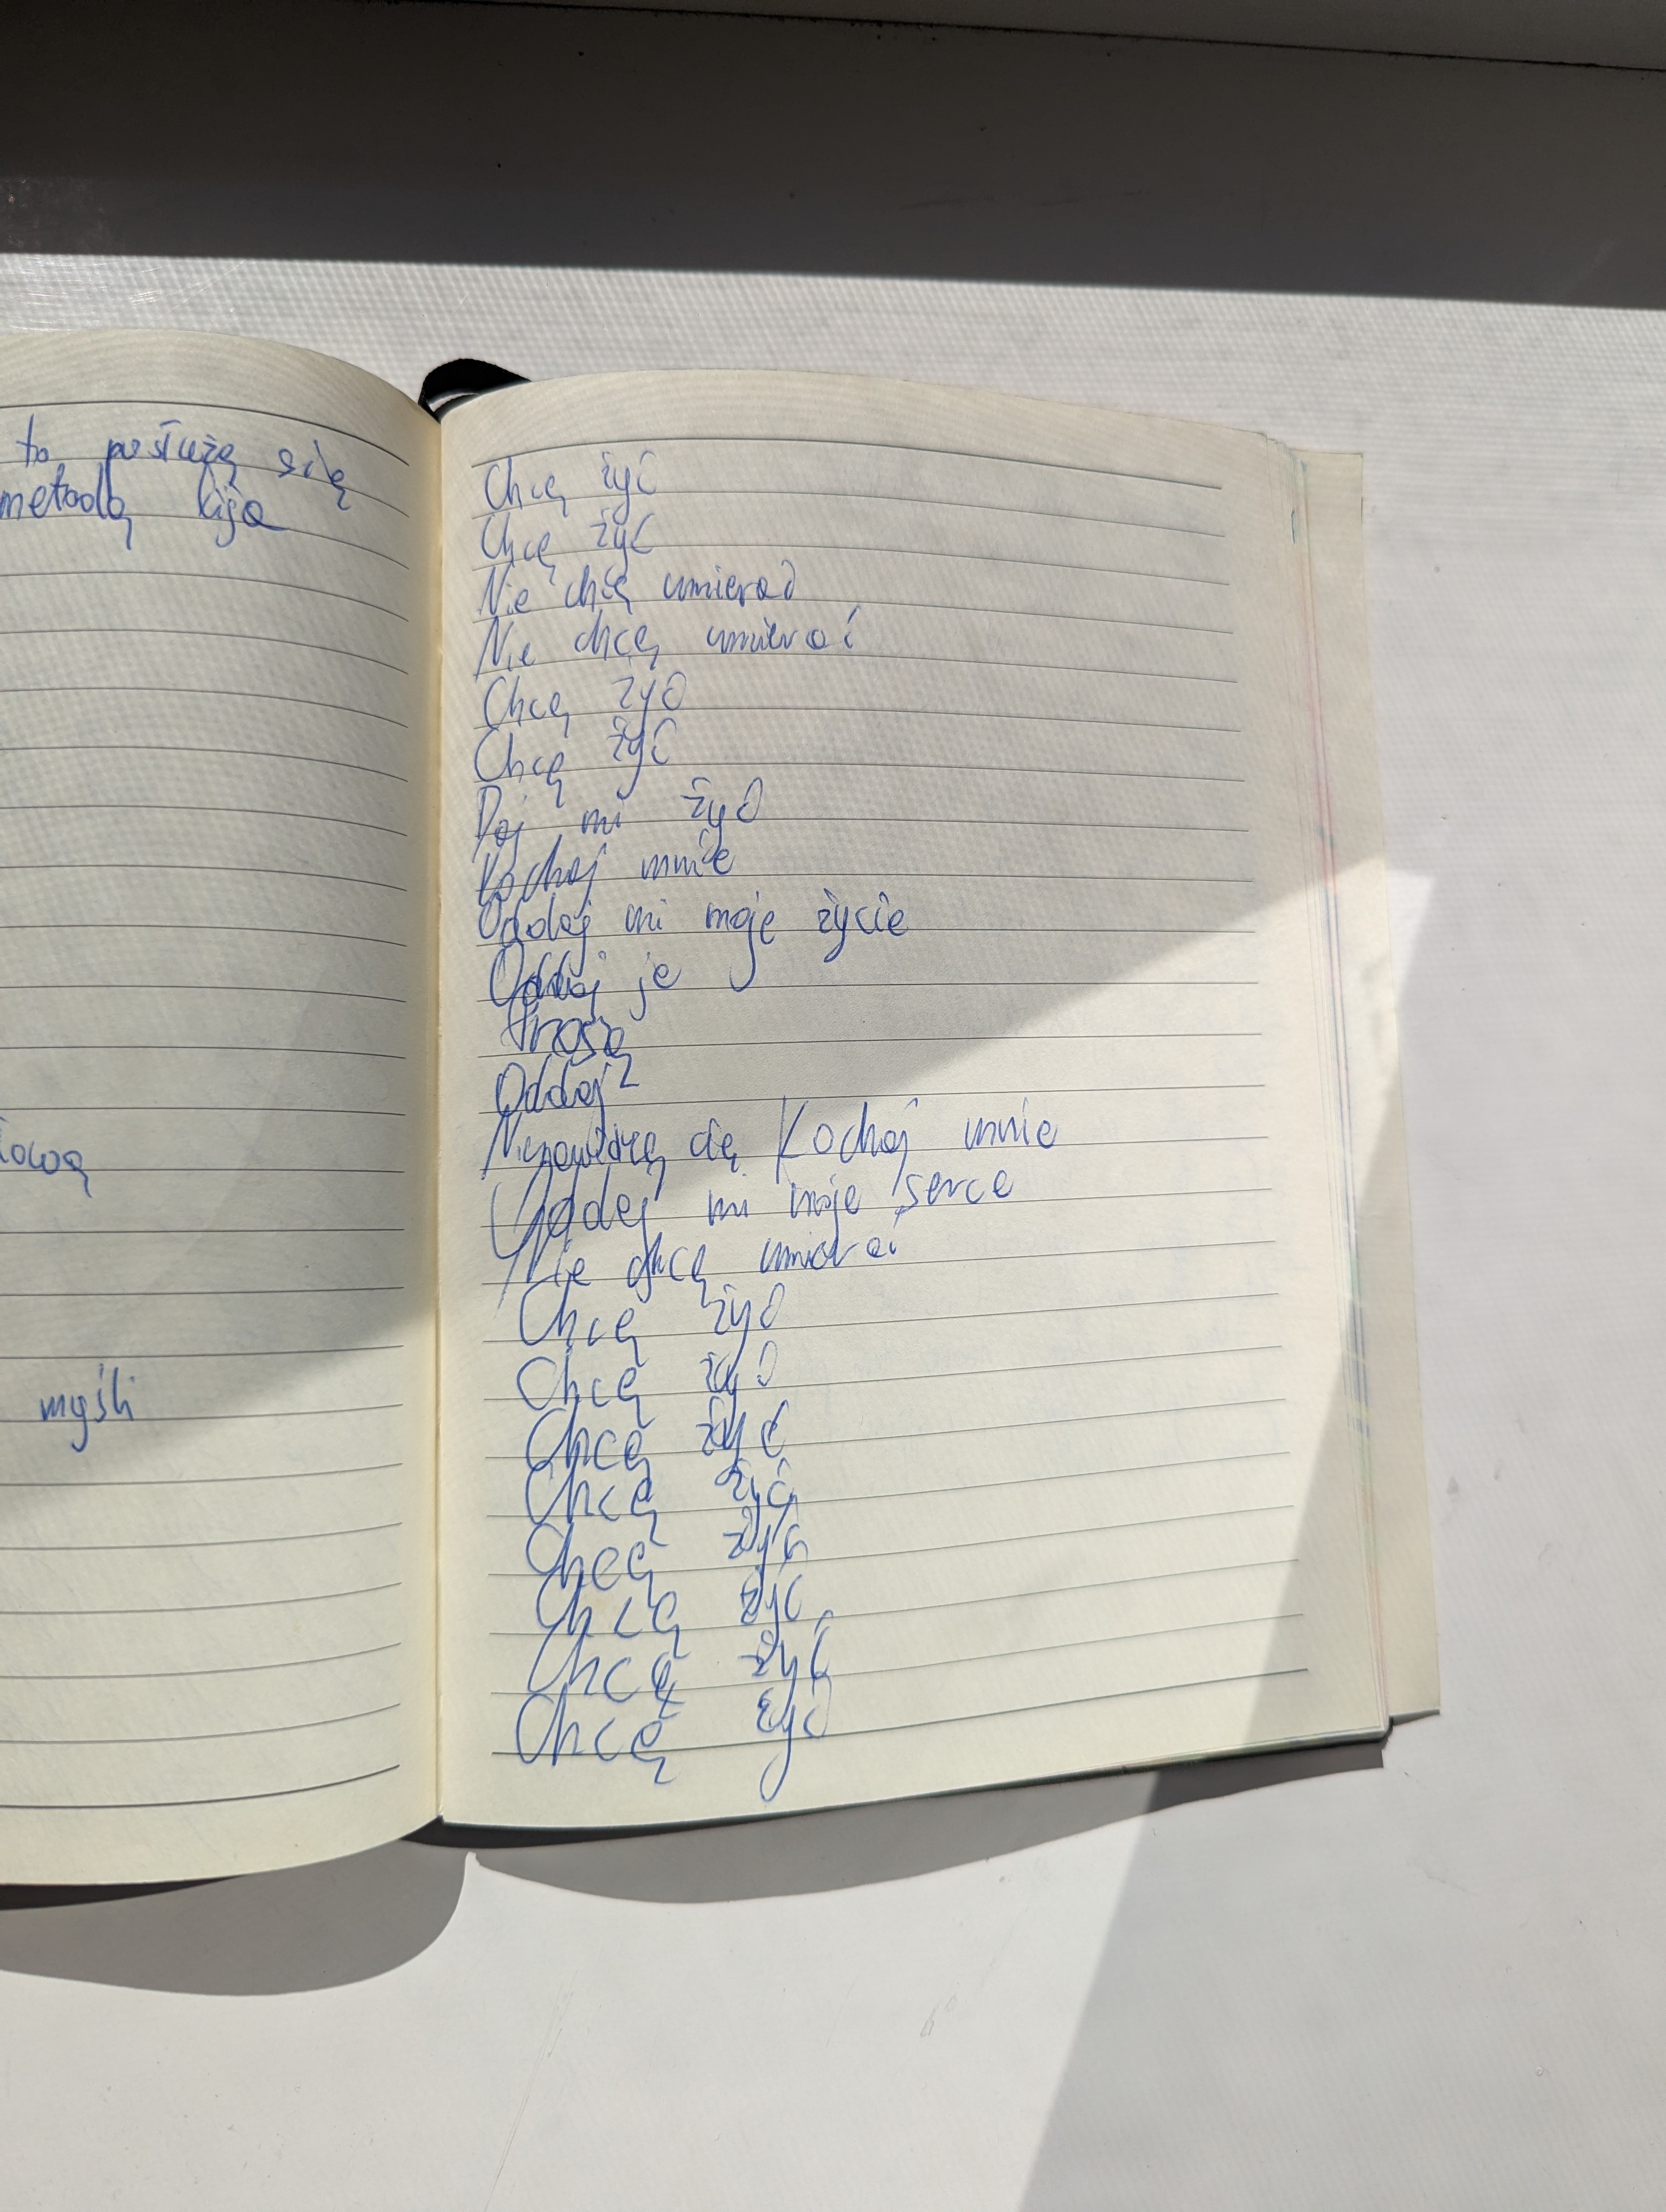 to posłużę się
metodą kija
łową
myśli
Chcę żyć
Chcę żyć
Nie chcę umierać
Nie chcę umierać
Chcę żyć
Chcę żyć
Daj mi żyć
Kochaj mnie
Oddaj mi moje życie
Oddaj je
Proszę
Oddaj
Nienawidzę cię Kochaj mnie
Oddaj mi moje serce
Nie chcę umierać
Chcę żyć
Chcę żyć
Chcę żyć
Chcę żyć
Chcę żyć
Chcę żyć
Chcę żyć
Chcę żyć